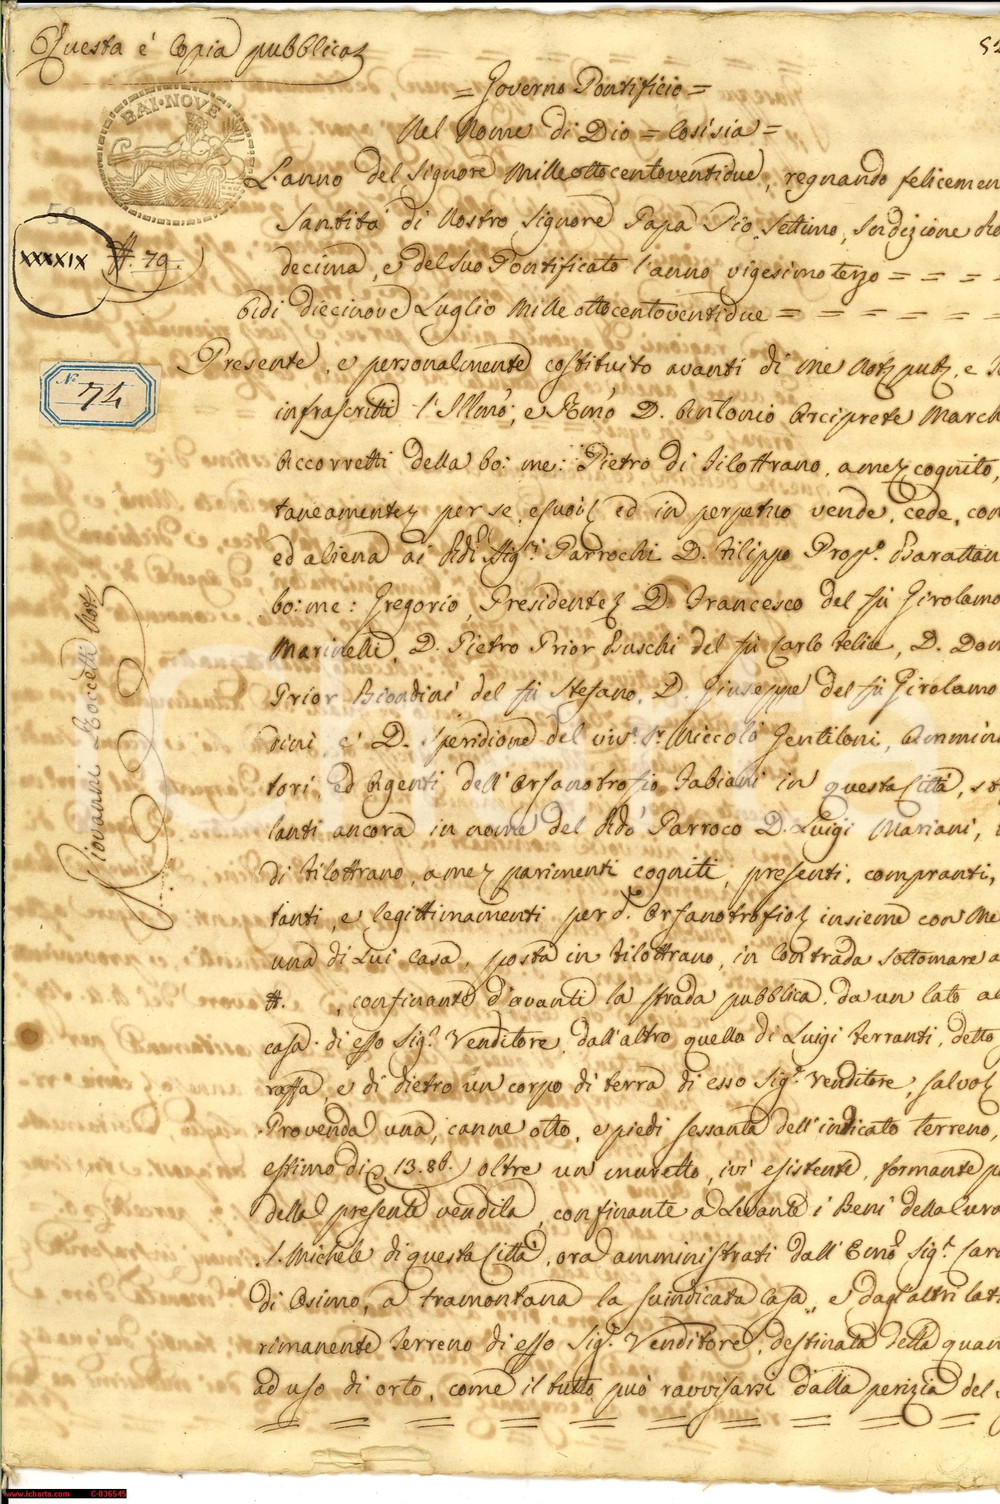 Questa è Copia pubblica
52
= Governo Pontificio =
BAI·NOVE
Nel Nome di Dio = Così sia =
L'anno del Signore Mille ottocentoventidue, regnando felicemen
Santità di Nostro Signore Papa Pio Settimo, Indizione Ro
XXXXIX #. 79.
decima, e del suo Pontificato l'anno vigesimoterzo = = = =
Odi diecinove Luglio Mille ottocentoventidue = = = = = =
Presente, e personalmente costituito avanti di me Notº pubº, e
N. 74
infrascritti l'Illmo, e Rmo D. Antonio Arciprete March
Accorretti della bo: me: Pietro di Filottrano, a me cognito,
taneamente per se, e suoi ed in perpetuo vende, cede, con
ed aliena ai Rdi Sigri Parrochi D. Filippo Propº. Barattan
bo: me: Gregorio, Presidente D. Francesco del fù Girolamo
Marinelli, D. Pietro Prior Buschi del fù Carlo Felice, D. Dom
Prior Biondini del fù Stefano, D. Giuseppe del fù Girolamo
rini, e D. Speridione del viv. Sr. Niccolò Gentiloni, Ammini
tori, ed Agenti dell'Orfanotrofio Fabiani in questa Città, sti
lanti ancora in nome del Rdo Parroco D. Luigi Mariani,
di Filottrano, a me parimenti cogniti, presenti, compranti,
tanti, e legittimamenti per d. Orfanotrofio insieme con Me
una di Lui Casa, posta in Filottrano, in Contrada Sottomare a
#. , confinante d'avanti la strada pubblica, da un lato al
casa di esso Sigr. Venditore, dall'altro quella di Luigi Ferranti, detto
raffa, e di dietro un corpo di terra di esso Sigr. Venditore, salvo
Provenda una, canne otto, e piedi sessanta dell'indicato terreno,
estimo di 13.86. oltre un muretto, ivi esistente, formante p
della presente vendita, confinante a Levante i Beni della Cura
S. Michele di questa Città, ora amministrati dall'Emo Sigr. Car
di Osimo, a tramontana la suindicata Casa, e dagl'altri lati
rimanente Terreno di esso Sigr. Venditore, destinata della quan
ad uso di orto, come il tutto può ravvisarsi dalla perizia del
Giovanni Not.
icharta
www.icharta.com C-036545